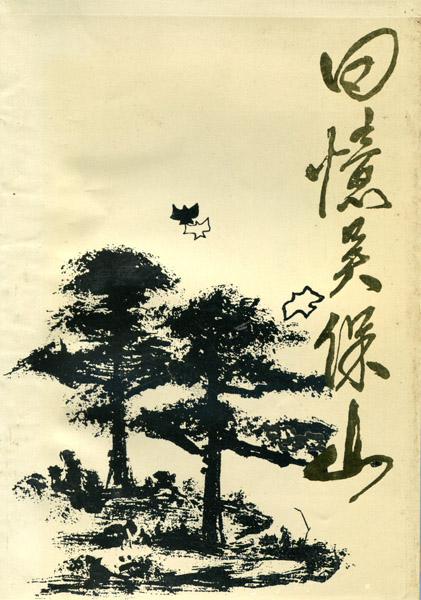 回憶吴保山